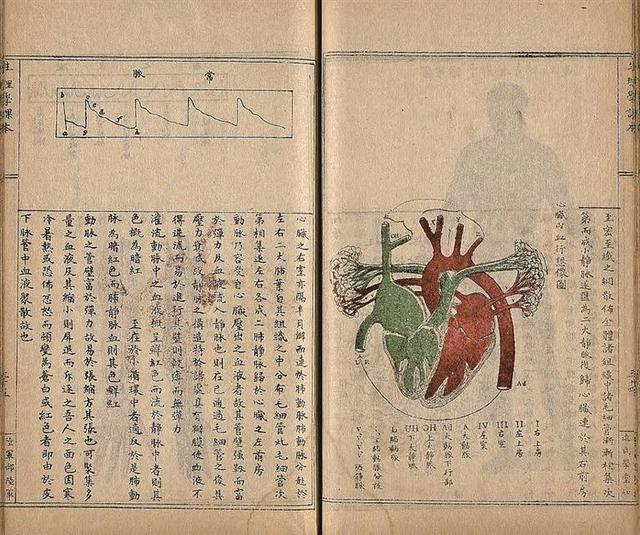 生理學課本
至密至纖之網散佈全體諸組織中諸毛細管漸漸相集次
第而成小靜脈遂匯為二大靜脈復歸心臟連於其右前房
心臟內血行想像圖
I 右上房
II 左上房
III 右室
IV 左室
A 大動脈
Ad 大動脈下行部
OH 上大靜脈
UH 下大靜脈
L 肺動脈
肺動脈分枝
肺靜脈
Ad
常脈
心臟之右室亦隔半月瓣而連於肺動脈肺動脈分赴於
左右二大肺葉自其組織之中分有毛細管此毛細管次
第相集遂左右各成二肺靜脈歸於心臟之左前房
動脈乃容受自心臟壓出之血液者故其管壁強靱而富
於彈力反血液流入靜脈也則在已通過毛細管之後其
壓力衰減故靜脈之構造特於諸處具有瓣膜使血液不
得逆流而易於進行其壁則較薄而無彈力
灌流動脈中之血液概呈鮮紅色而流於靜脈中者則其
色概為暗紅 至在於肺循環中者適反於是肺動
脈為暗紅色而肺靜脈血則其色鮮紅
動脈之管壁富於彈力故易於張縮方其張也可聚集多
量之血液及其縮小則屏退而斥逐之吾人之面色因寒
冷暑熱或恐佈忿怒而頓變為蒼白或紅色者即由於皮
下脈管中血液聚散故也
生理學課本